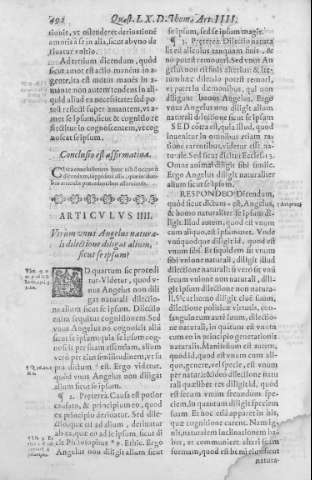 492 Quæst. LX. D. Thom. Art. IIII.
tionis, vt ostenderet deriuatione
amoris à se in alia, sicut ab vno de
riuatur
Ad tertium dicendum, quòd
sicut amor est actio manés in a-
gente, ita
manens in
non autem tendens in ali-
quid aliud ex necessitate: sed po
test reflecti super amantem, vt a-
met se ipsum, sicut & cognitio re
flectitur in cognoscentem, vt cog
noscat se ipsum.
Conclusio est affirmatiua.
ARTICVLVS IIII.
Vtrum vnus Angelus natura-
li dilectione diligat alium,
sicut se ipsum?
AD quartum sic procedi
tur. Videtur, quòd v-
nus Angelus non dili
gat naturali dilectio-
ne alium sicut se ipsum. Dilectio
enim sequitur cognitionem. Sed
vnus Angelus no cognoscit aliũ
sicut se ipsum: quia se ipsum cog-
noscit per suam essentiam, alium
verò per eius similitudinem, vt su
pra dictum est. Ergo videtur,
quòd vnus Angelus non diligat
alium sicut se ipsum.
¶ 2. Præterea. Causa est potior
causato, & principium eo, quod
ex principio deriuatur. Sed dile-
ctio quæ est ad alium, deriuatur
ab ea, quæ est ad se ipsum, sicut di
cit Philosophus * 9. Ethic. Ergo
Angelus non diligit alium sicut
se ipsum, sed se ipsum magis.
¶ 3. Præterea. Dilectio natura
lis est alicuius tanquam finis, & no
potest remoueri. Sed vnus An-
gelus non est finis alterius: & ite-
rum hæc dilectio potest ab eo re-
moueri, vt patet in dæmonibus, qui non
diligunt bonos Angelos. Ergo
vnus Angelus non diligit alium
naturali dilectione sicut se ipsum.
SED cótra est, quia illud, quod
inuenitur in omnibus etiam ra-
tione carentibus, videtur esse na-
turale. Sed sicut dicitur Ecclesi. 13.
Omne animal diligit sibi simile.
Ergo Angelus diligit naturaliter
alium sicut se ipsum.
RESPONDEO Dicendum,
quòd sicut dictum est, Angelus,
& homo naturaliter se ipsum di-
ligit. Illud autem quod est vnum
cum aliquo, est ipsummet: vnde
vnumquodque diligit id, quod est
vnum sibi. Et si quidem sit vnum
sibi vnione naturali, diligit illud
dilectione naturali: si verò sit vnũ
secum vnione non naturali, dili-
git ipsum dilectione non natura-
li. Sicut homo diligit ciuẽ suum,
dilectione politicæ virtutis, con-
sanguineum autem suum, dilectio
ne naturali, in quantum est vnum
cum eo in principio generationis
naturalis. Manifestum est autem,
quòd id, quod est vnum cum ali-
quo, genere, vel specie, est vnum
per naturã: & ideo dilectione natu
rali quælibet res diligit id, quod
est secum vnum secundum spe-
ciem, in quantum diligit speciem
suam. Et hoc etiã apparet in his,
quæ cognitione carent. Nam ig-
nis habet naturalem inclinatio-
nem, vt communicet alteri suam
formam, quod est bonum
natura-